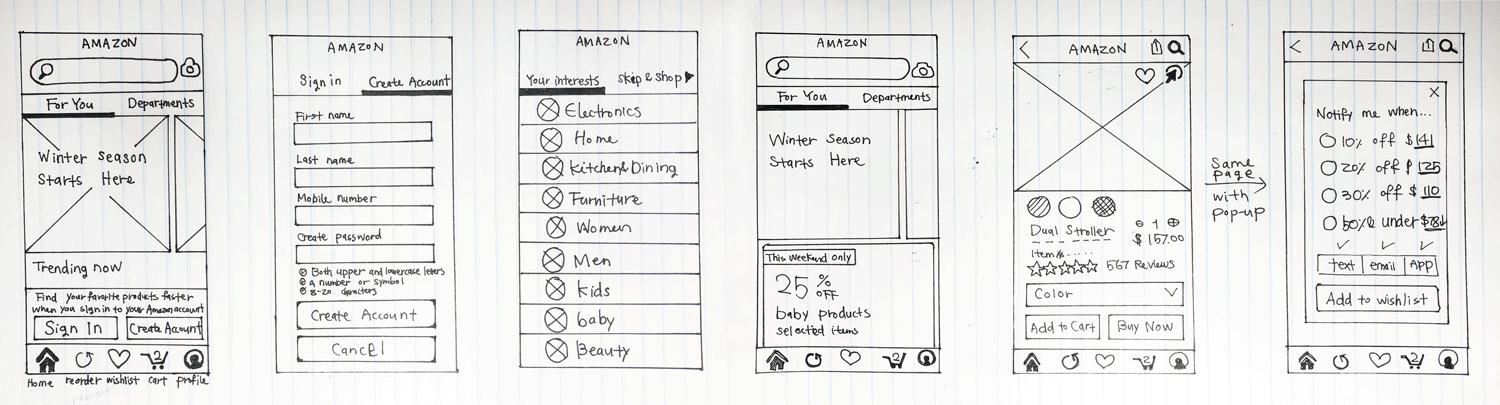 AMAZON
For You
Departments
Winter season
Starts Here
Trending now
Find your favorite products faster
when you sign in to your Amazon account
Sign In
Create Account
2
Home
reorder
wishlist
cart
profile
AMAZON
Sign in
Create Account
First name
Last name
Mobile number
Create password
Both upper and lowercase letters
a number or symbol
8-20 characters
Create Account
Cancel
AMAZON
Your interests
skip & shop
Electronics
Home
Kitchen & Dining
Furniture
Women
Men
Kids
baby
Beauty
AMAZON
For You
Departments
Winter Season
Starts Here
This weekend only
25 % OFF
baby products
selected items
2
AMAZON
Dual Stroller
⊖ 1 ⊕
$ 157.00
Item#......
567 Reviews
Color
Add to Cart
Buy Now
2
Same
page
with
pop-up
AMAZON
X
Notify me when...
10% off $141
20% off $ 125
30% off $ 110
50% under $78↓
text
email
APP
Add to wishlist
2